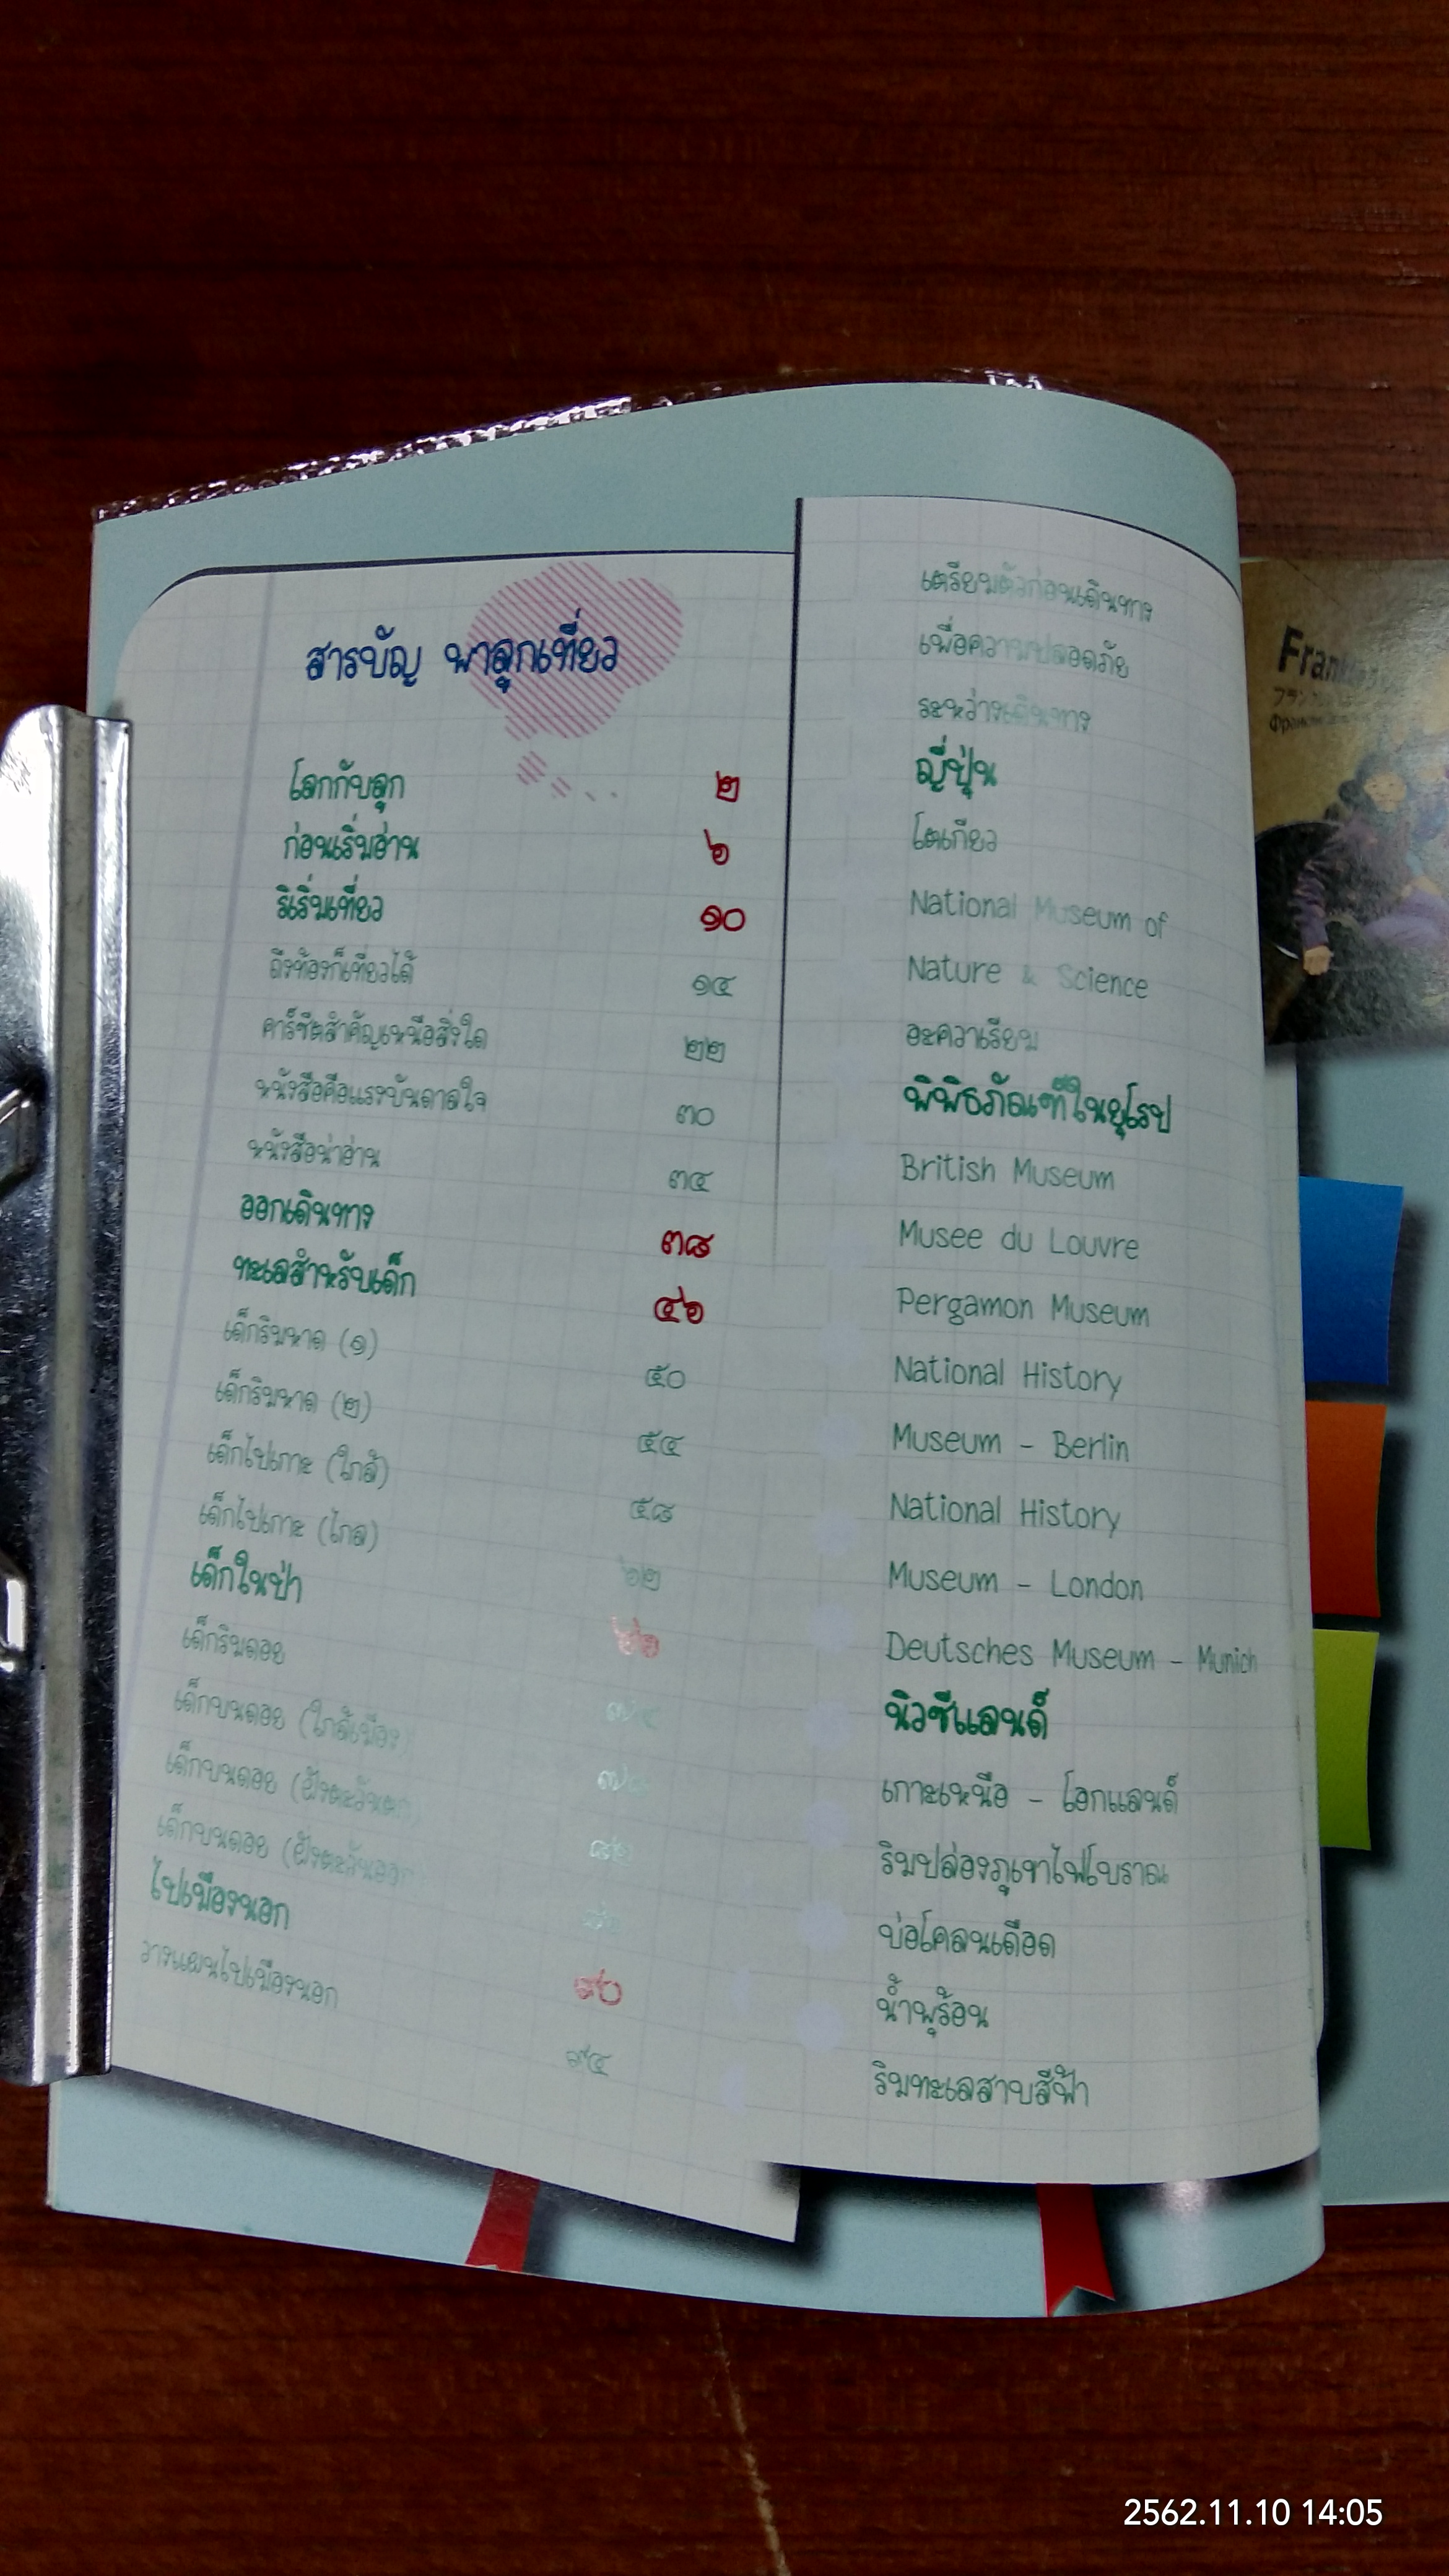 สารบัญ พาลูกเที่ยว
โลกกับลูก ๒
ก่อนเริ่มอ่าน ๖
ริเริ่มเที่ยว ๑๐
ถึงท้องก็เที่ยวได้ ๑๔
คาร์ซีตสำคัญเหนือสิ่งใด ๒๒
หนังสือคือแรงบันดาลใจ ๓๐
หนังสือน่าอ่าน ๓๔
ออกเดินทาง ๓๘
ทะเลสำหรับเด็ก ๔๖
เด็กริมหาด (๑) ๕๐
เด็กริมหาด (๒) ๕๔
เด็กไปเกาะ (ใกล้) ๕๘
เด็กไปเกาะ (ไกล) ๖๒
เด็กในป่า ๖๖
เด็กริมดอย
เด็กบนดอย (ใกล้เมือง)
เด็กบนดอย (ฝั่งตะวันตก)
เด็กบนดอย (ฝั่งตะวันออก)
ไปเมืองนอก ๙๐
วางแผนไปเมืองนอก ๙๔
เตรียมตัวก่อนเดินทาง
เพื่อความปลอดภัย
ระหว่างเดินทาง
ญี่ปุ่น
โตเกียว
National Museum of
Nature & Science
อะควาเรียม
พิพิธภัณฑ์ในยุโรป
British Museum
Musee du Louvre
Pergamon Museum
National History
Museum - Berlin
National History
Museum - London
Deutsches Museum - Munich
นิวซีแลนด์
เกาะเหนือ - โอกแลนด์
ริมปล่องภูเขาไฟโบราณ
บ่อโคลนเดือด
น้ำพุร้อน
ริมทะเลสาบสีฟ้า
2562.11.10 14:05